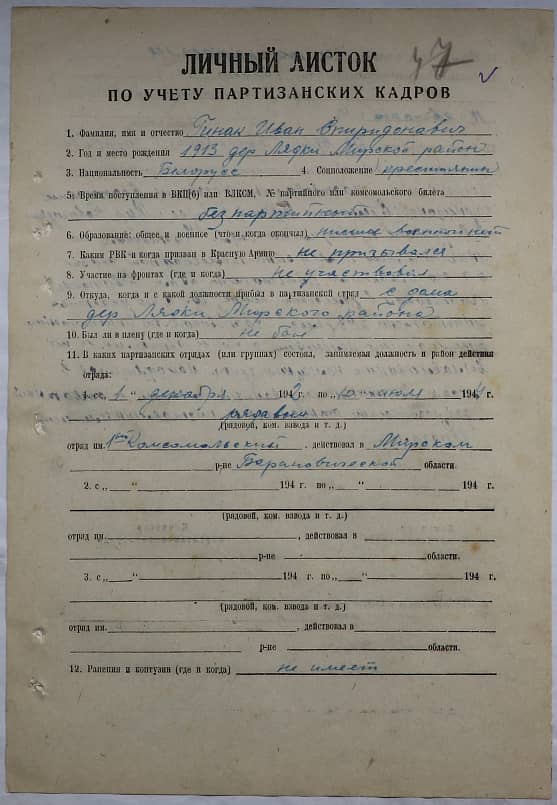 47
ЛИЧНЫЙ ЛИСТОК
ПО УЧЕТУ ПАРТИЗАНСКИХ КАДРОВ
1. Фамилия, имя и отчество Гинак Иван Спиридонавич
2. Год и место рождения 1913 дер Лядки Мирской район
3. Национальность Белорусс 4. Соцположение крестьянин
5. Время поступления в ВКП(б) или ВЛКСМ, № партийного или комсомольского билета
безпартийный
6. Образование: общее и военное (что и когда окончил) низшее военной нет
7. Каким РВК и когда призван в Красную Армию не призывался
8. Участие на фронтах (где и когда) не участвовал
9. Откуда, когда и с какой должности прибыл в партизанский отряд с дома
дер Лядки Мирского района
10. Был ли в плену (где и когда) не был
11. В каких партизанских отрядах (или группах) состоял, занимаемая должность и район действия
отряда:
1. с „1" декабря 1942 г. по „10" июля 1944 г.
рядавым
(рядовой, ком. взвода и т. д.)
отряд им. 1вый Комсомольский, действовал в Мирском
р-не Барановической области.
2. с „ " 194 г. по „ " 194 г.
(рядовой, ком. взвода и т. д.)
отряд им. , действовал в
р-не области.
3. с „ " 194 г. по „ " 194 г.
(рядовой, ком. взвода и т. д.)
отряд им. , действовал в
р-не области.
12. Ранения и контузии (где и когда) не имеет